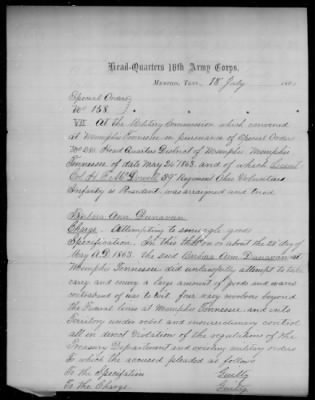 Head-Quarters 16th Army Corps,
Memphis, Tenn., 18 July 186
Special Orders
No 158.
VII At the Military Commission which convened
at Memphis Tennessee in pursuance of Special Order
Head Quarters District of Memphis Memphis
Tennessee of date May 24 1863. and of which Lieut
Col H. F. McDowell 39" Regiment Ohio Volunteers
Infantry is President was arraigned and tried
Barbara Ann Dunavan
Charge. Attempting to smuggle goods
Specification. In this that on or about the 28 day of
May A.D. 1863. the said Barbara Ann Dunavan at
Memphis Tennessee did unlawfully attempt to take
carry and envoy a large amount of goods and wares
contraband of war to wit. four navy revolvers beyond
the Federal lines at Memphis Tennessee. and into
Territory under rebel and insurrectionary control
all in direct violation of the regulations of the
Treasury Department and existing military orders
To which the accused pleaded as follows
To the Specification Guilty
To the Charge Guilty